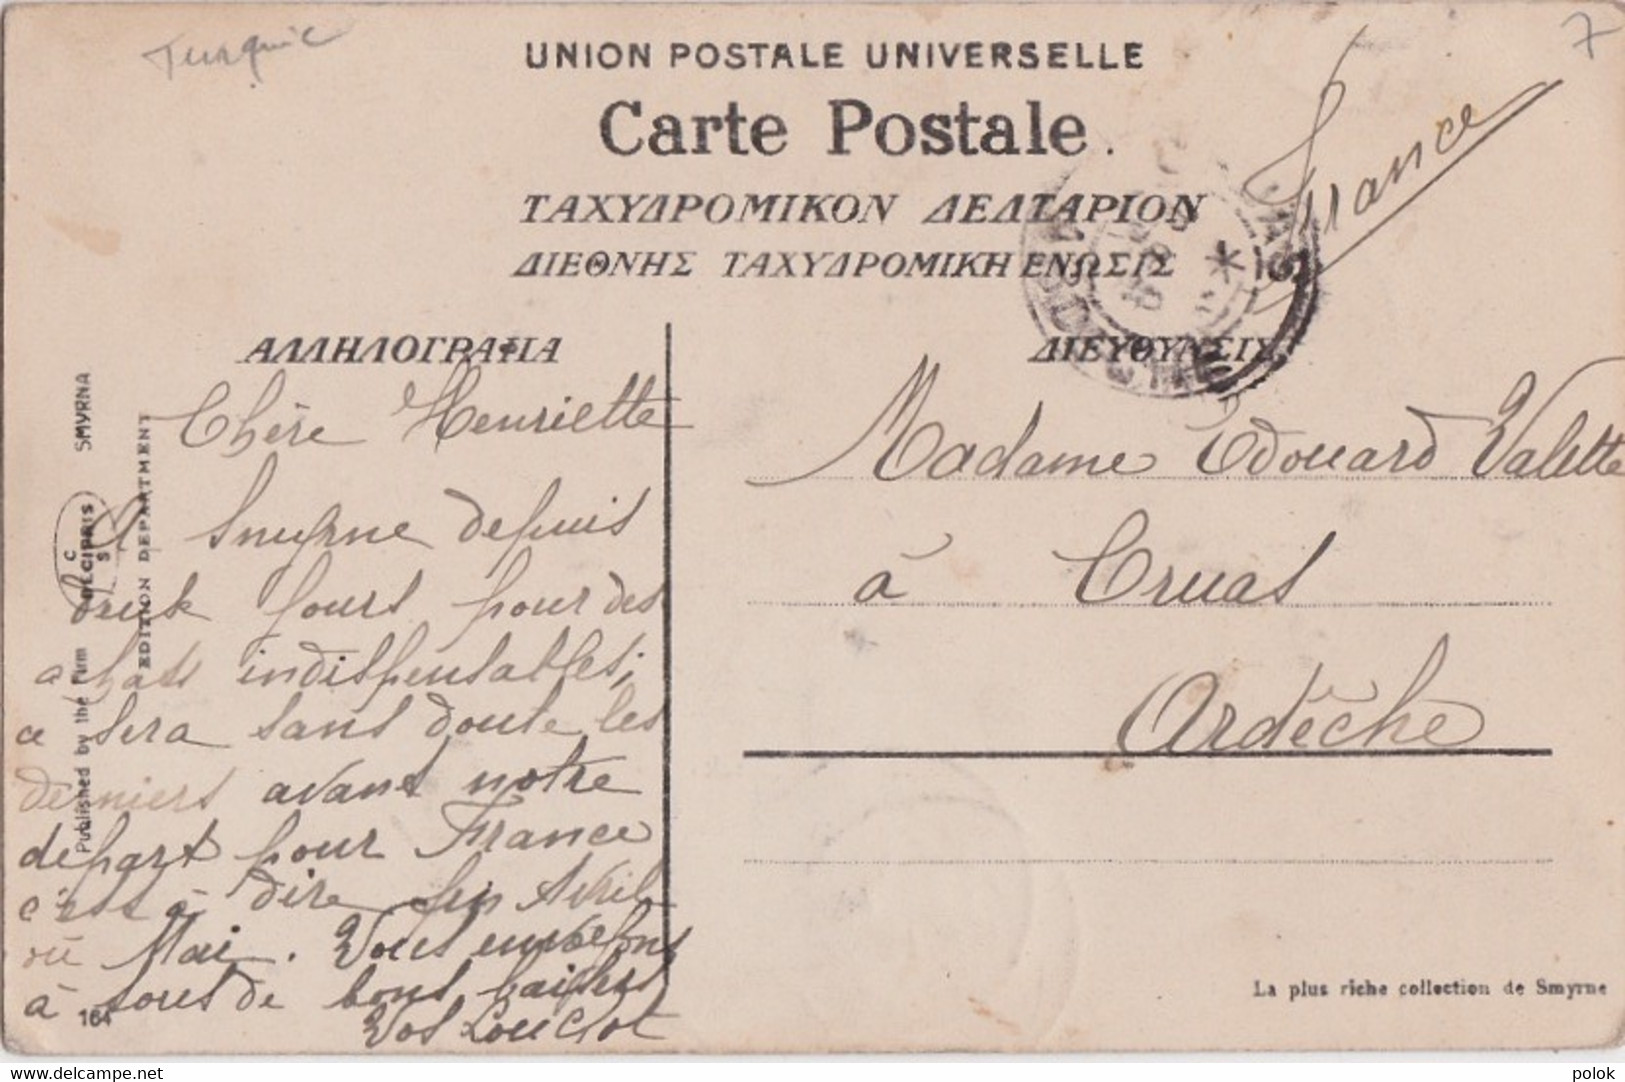 Turquie
7
UNION POSTALE UNIVERSELLE
Carte Postale.
ΤΑΧΥΔΡΟΜΙΚΟΝ ΔΕΛΤΑΡΙΟΝ
ΔΙΕΘΝΗΣ ΤΑΧΥΔΡΟΜΙΚΗ ΕΝΩΣΙΣ
France
ΑΛΛΗΛΟΓΡΑΦΙΑ
ΔΙΕΥΘΥΝΣΙΣ
ARDECHE
Chère Henriette
A Smyrne depuis
deux jours pour des
achats indispensables;
ce sera sans doute les
derniers avant notre
départ pour France
c'est à dire fin Avril
ou Mai. Vous embrassons
à tous de bons baisers
Vos
Madame Edouard Valette
à Cruas
Ardèche
Published by the Firm SMYRNA
C S
EDITION DEPARTMENT
164
La plus riche collection de Smyrne
delcampe.net
polok